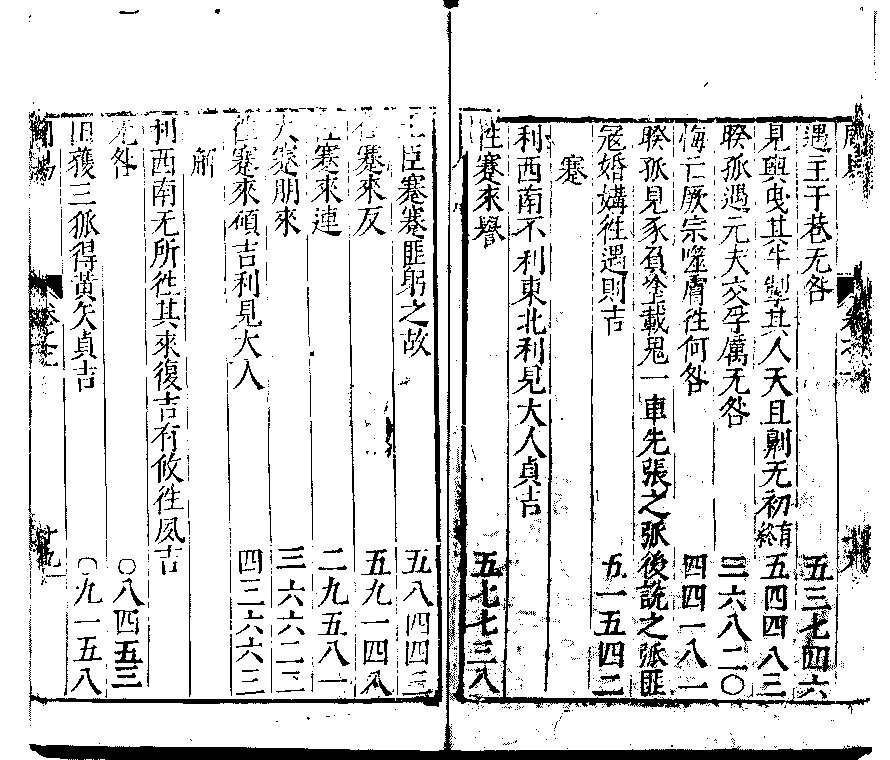 遇主于巷无咎 五三七四六
見輿曳其牛掣其人天且劓无初有終 五四四八三
睽孤遇元夫交孚厲无咎 三六八二〇
悔亡厥宗噬膚徃何咎 四四一八一
睽孤見豕負塗載鬼一車先張之弧後說之弧匪
寇婚媾徃遇則吉 五一五四二
蹇
利西南不利東北利見大人貞吉
徃蹇來譽 五七七三八
王臣蹇蹇匪躬之故 五八四四三
徃蹇來反 五九一四八
蹇來連 二九五八一
大蹇朋來 三六六二三
徃蹇來碩吉利見大人 四三六六三
解
利西南无所徃其來復吉有攸徃夙吉
无咎 〇八四五三
田穫三狐得黃矢貞吉 〇九一五八
周易 卷之 十九